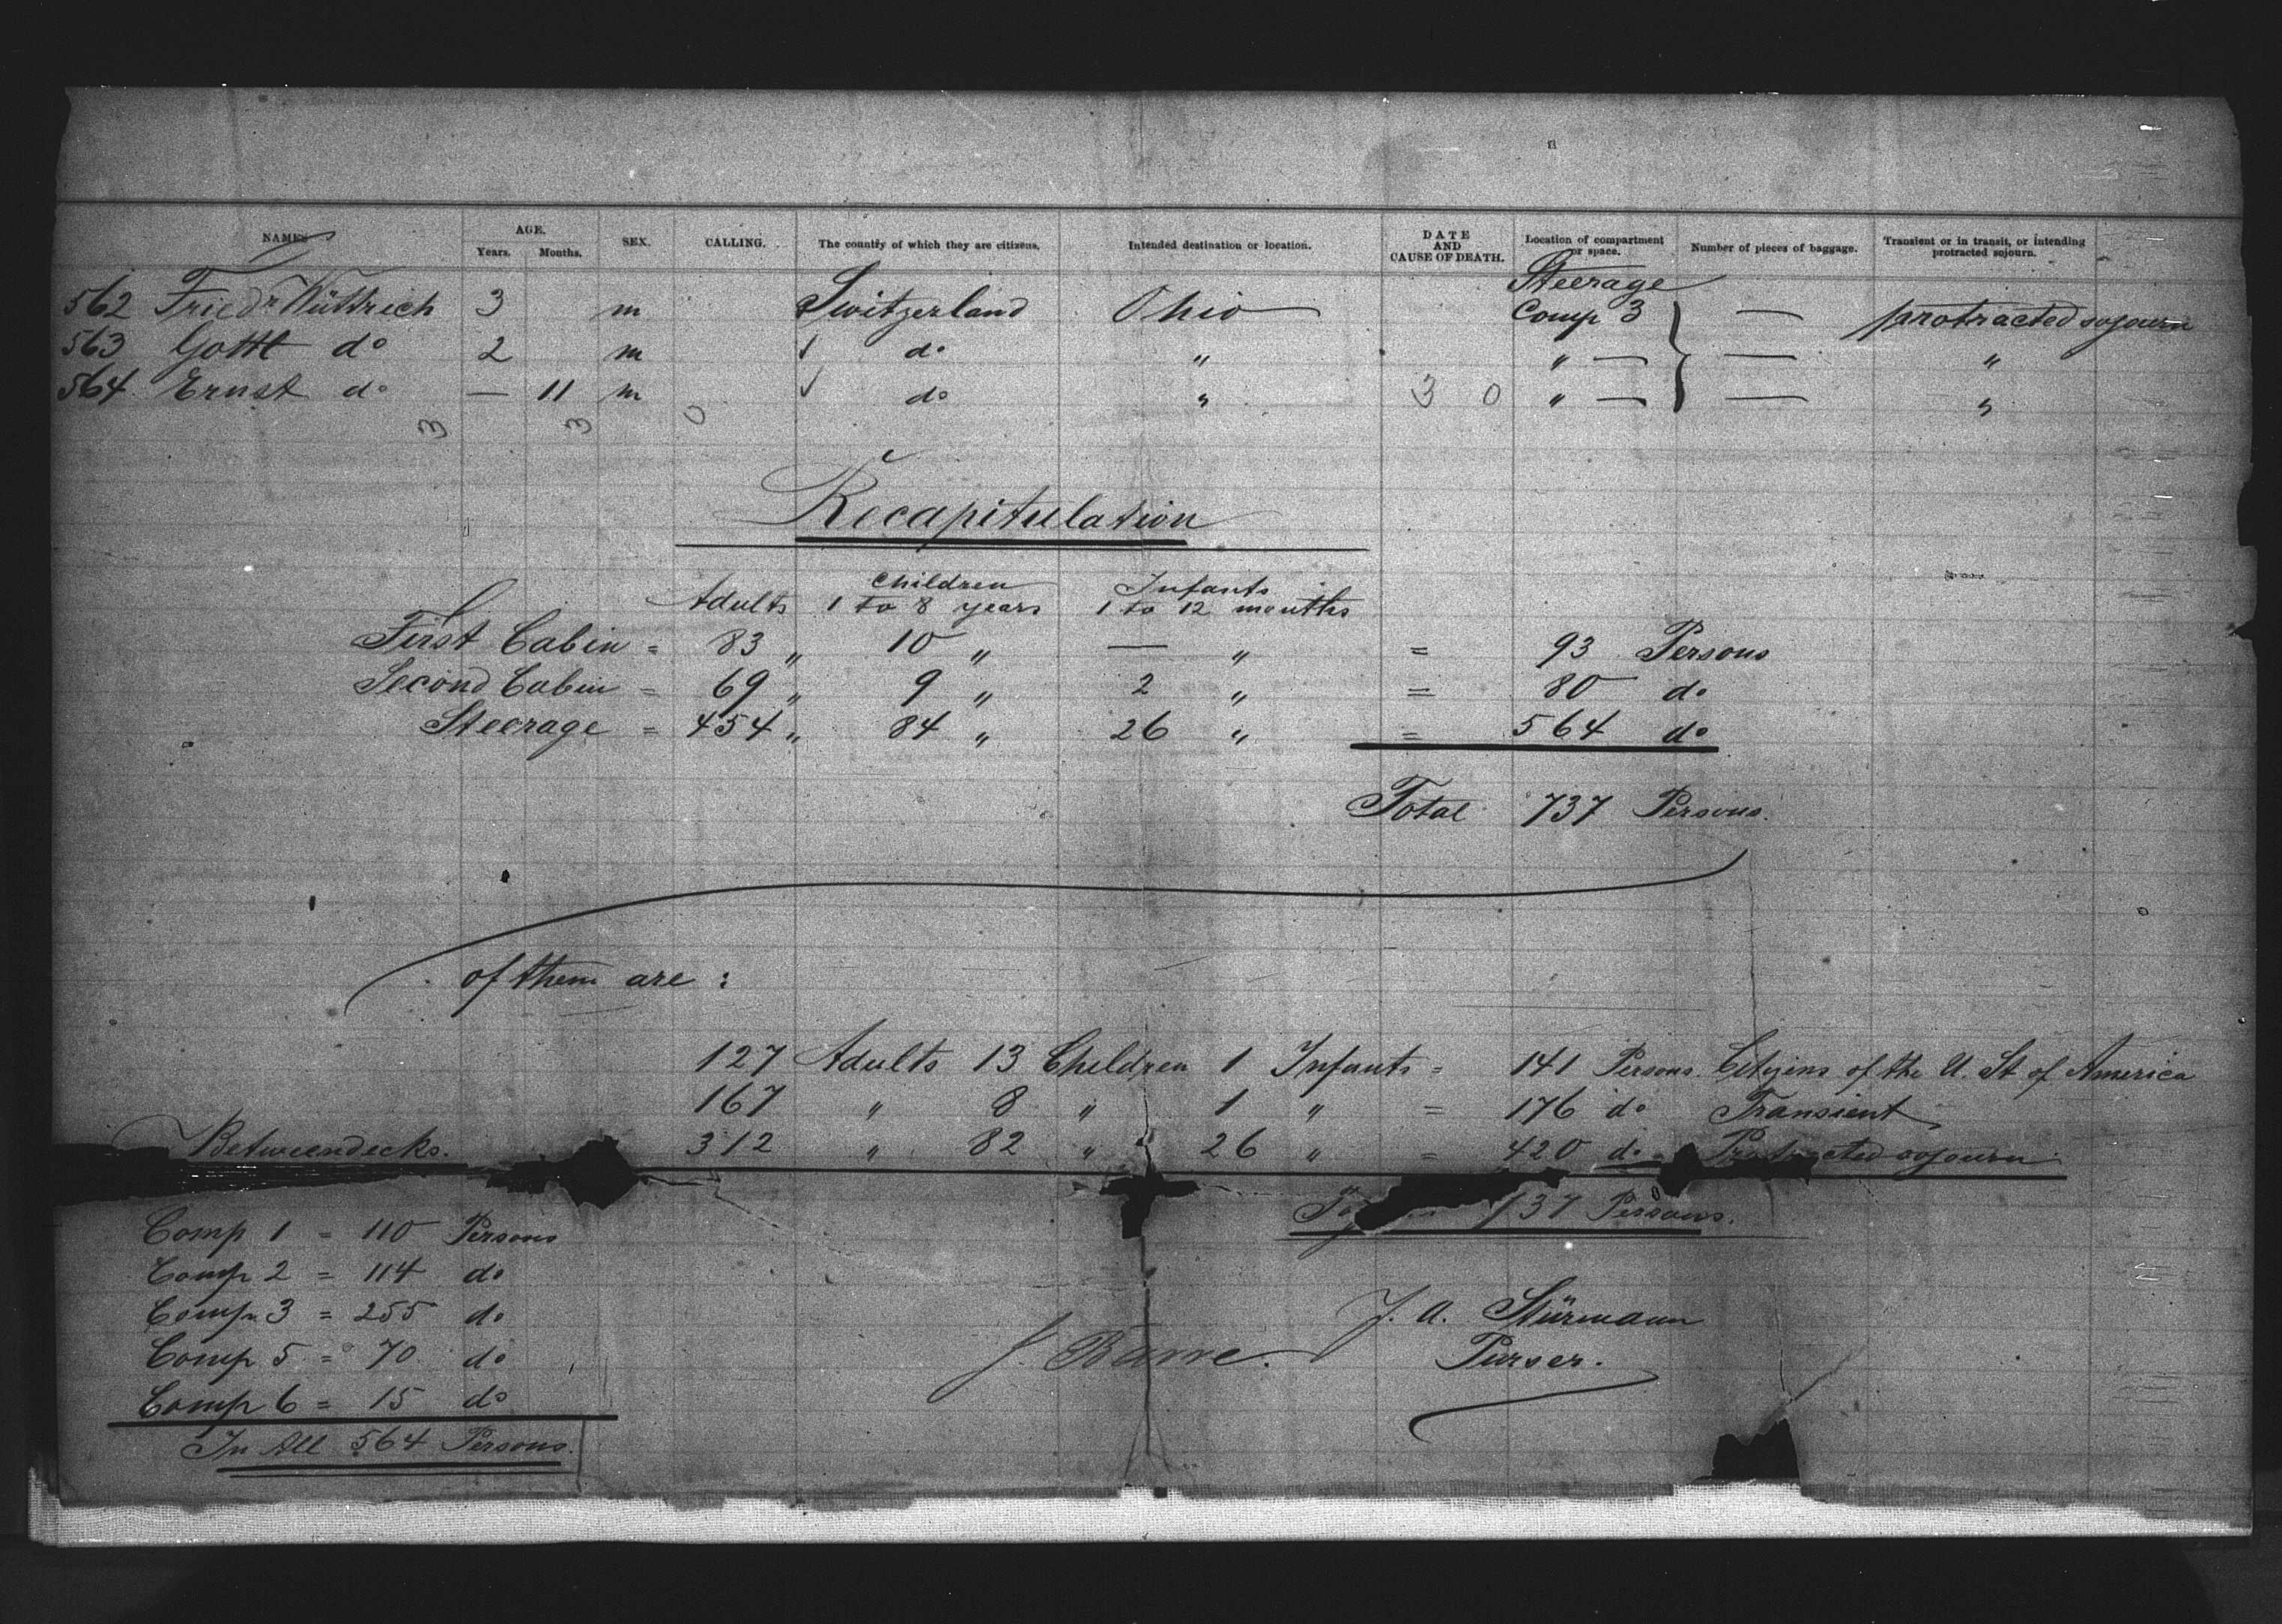 NAMES AGE. SEX. CALLING. The country of which they are citizens. Intended destination or location. DATE AND CAUSE OF DEATH. Location of compartment or space. Number of pieces of baggage. Transient or in transit, or intending protracted sojourn.
Years. Months.
Steerage
562 Friedr Wüttrich 3 m Switzerland Ohio Comp 3 — protracted sojourn
563 Gottl do 2 m ✓ do " " — — "
564 Ernst do — 11 m ✓ do " 3 0 " — — "
3 3 0
Recapitulation
Adults Children 1 to 8 years Infants 1 to 12 months
First Cabin = 83 " 10 " — " = 93 Persons
Second Cabin = 69 " 9 " 2 " = 80 do
Steerage = 454 " 84 " 26 " = 564 do
Total 737 Persons.
of them are :
127 Adults 13 Children 1 Infants = 141 Persons Citizens of the U. St of America
167 " 8 " 1 " = 176 do Transient
312 " 82 " 26 " = 420 do Protracted sojourn
737 Persons.
Betweendecks.
Comp 1 = 110 Persons
Comp 2 = 114 do
Comp 3 = 255 do
Comp 5 = 70 do
Comp 6 = 15 do
In All 564 Persons.
J. Barre.
J. A. Stürmann
Purser.